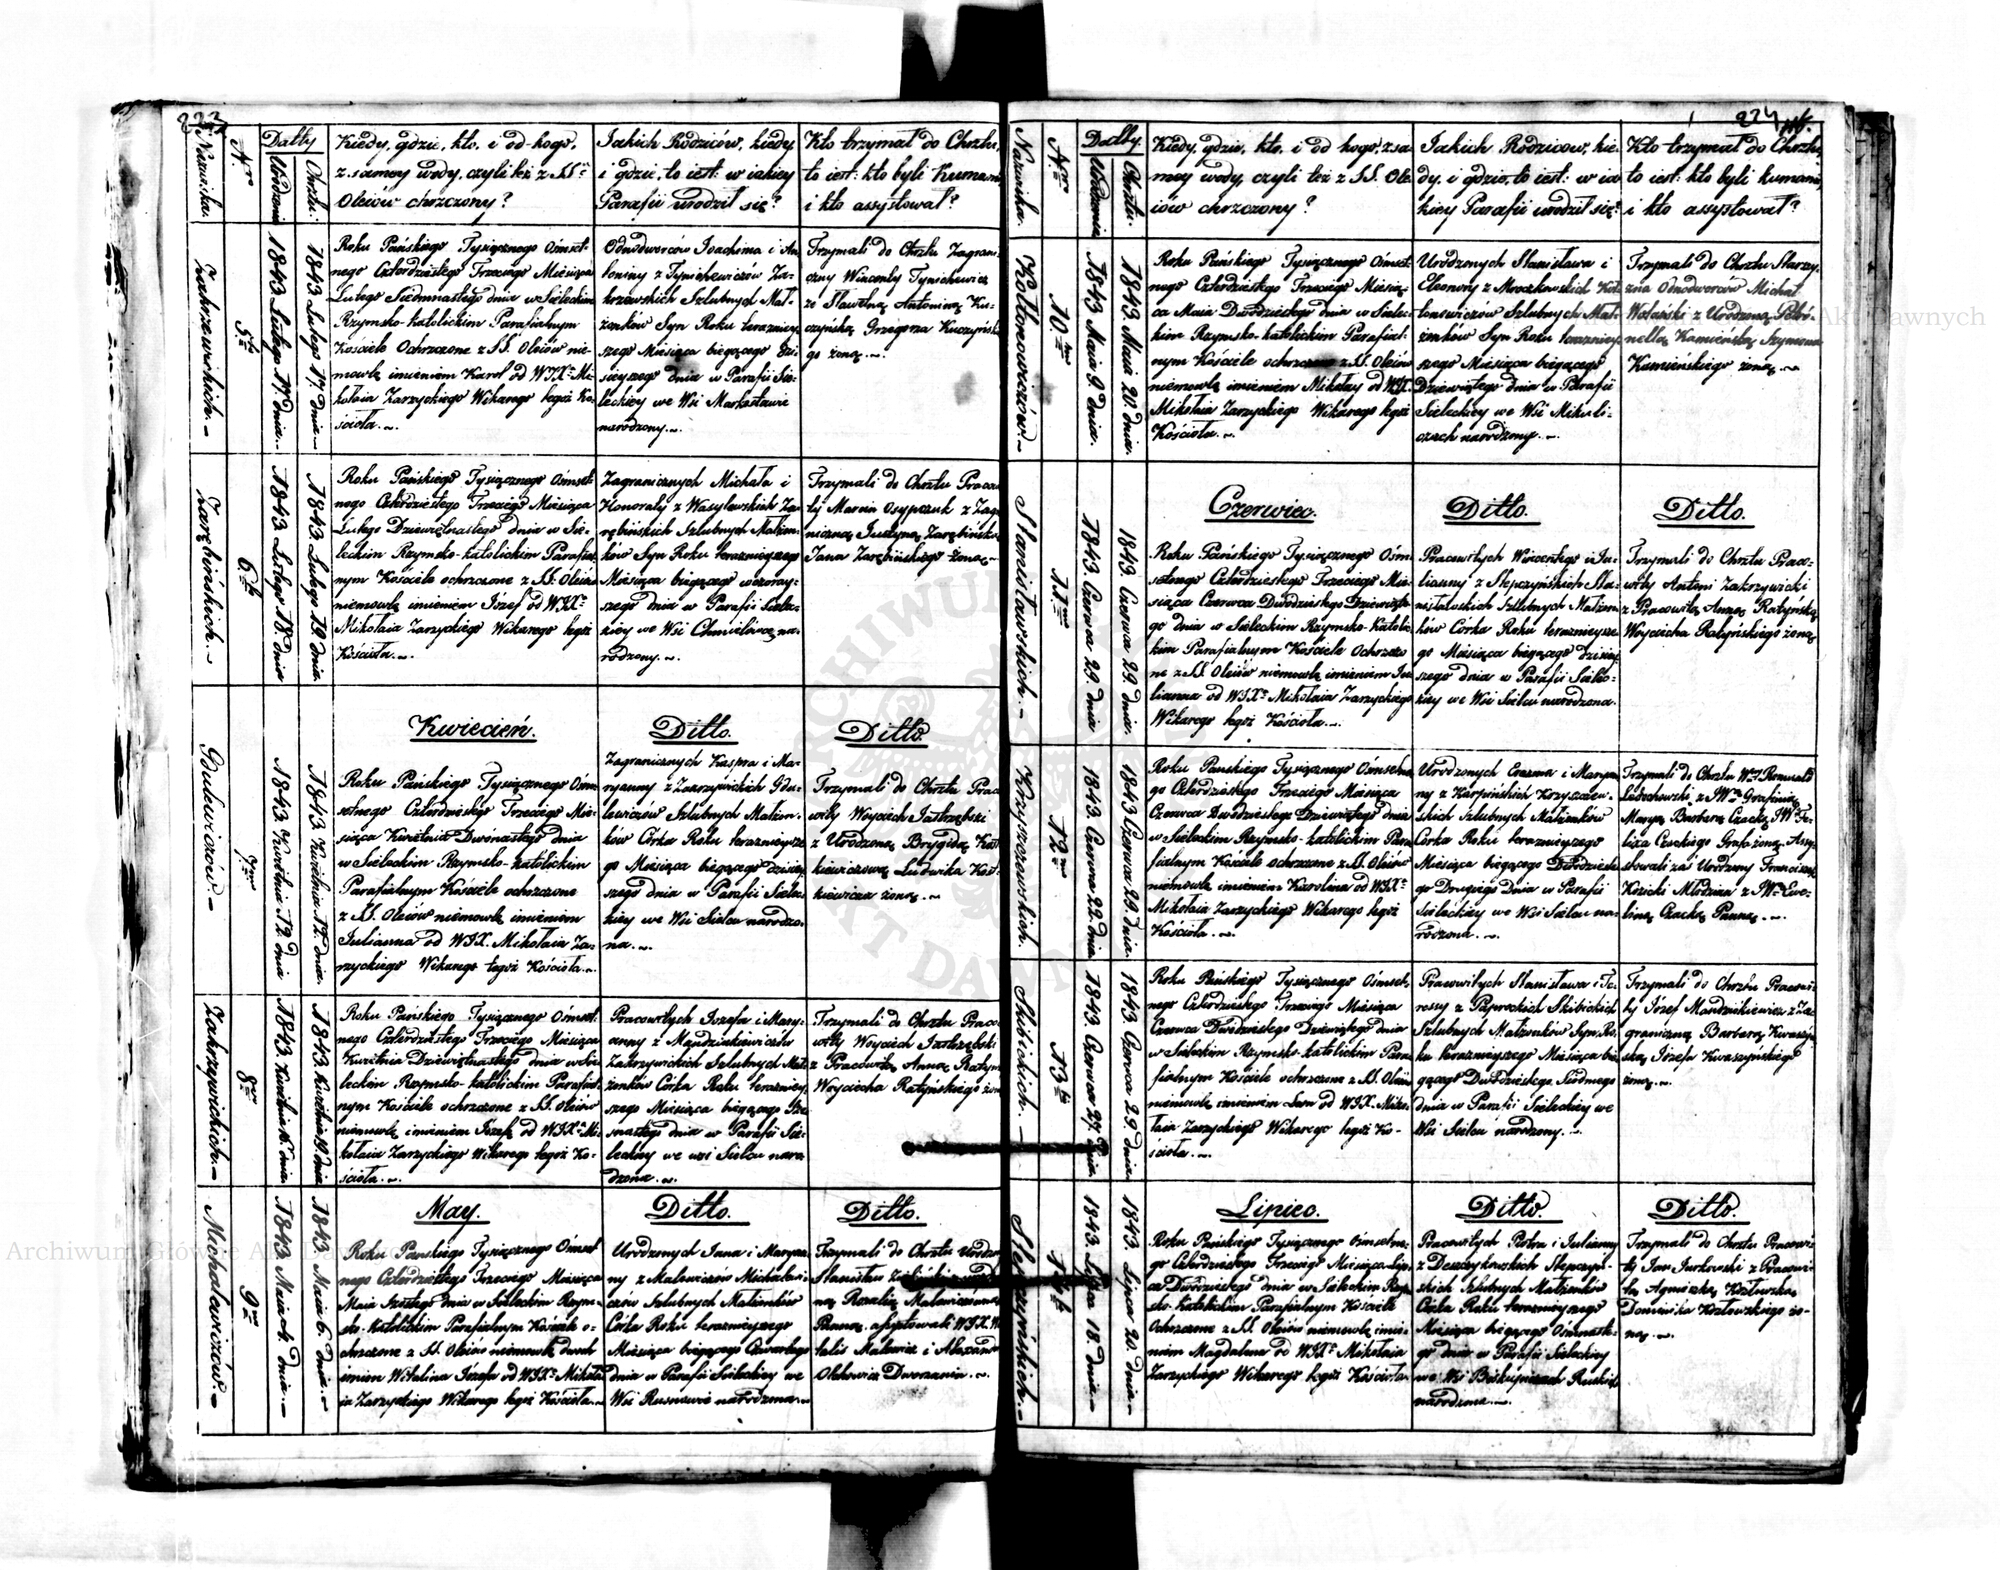 223
Nazwiska.
Nr
Datty
Urodzenia
Chrztu.
Kiedy, gdzie, kto, i od kogo,
z samey wody, czyli też z SS.
Oleiów chrzczony?
Jakich Rodziców, kiedy
i gdzie, to iest: w iakiey
Parafii urodził się?
Kto trzymał do Chrztu,
to iest: kto byli Kumami,
i kto assystował?
Zakrzewskich.
5te
1843 Lutego 17. dnia.
1843 Lutego 17. dnia.
Roku Pańskiego Tysiącznego Ośmset-
nego Czterdziestego Trzeciego Miesiąca
Lutego Siedmnastego dnia w Sieleckim
Rzymsko-katolickim Parafialnym
Kościele Ochrzczone z SS. Oleiów nie-
mowlę imieniem Karol od WJX. Mi-
kołaia Zarzyckiego Wikarego tegoż Ko-
ścioła.
Odnodworców Joachima i An-
toniny z Tynichewiczów Za-
krzewskich Szlubnych Mał-
żonków Syn Roku teraźniey-
szego Miesiąca biegącego dzi-
sieyszego dnia w Parafii Sie-
leckiey we Wsi Markostawie
narodzony.
Trzymali do Chrztu Zagrani-
czny Wincenty Tynichewicz
ze Sławetną Antoniną Ku-
czyńską Grzegorza Kuczyńskie-
go żoną.
Zarębińskich.
6te
1843 Lutego 18. dnia
1843 Lutego 19 dnia
Roku Pańskiego Tysiącznego Ośmset-
nego Czterdziestego Trzeciego Miesiąca
Lutego Dziewiętnastego dnia w Sie-
leckim Rzymsko-katolickim Parafial-
nym Kościele ochrzczone z SS. Oleiów
niemowlę imieniem Józef od WJX
Mikołaia Zarzyckiego Wikarego tegoż
Kościoła.
Zagranicznych Michała i
Honoraty z Wasylewskich Za-
rębińskich Szlubnych Małżon-
ków Syn Roku teraźnieyszego
Miesiąca biegącego wczoray-
szego dnia w Parafii Sielec-
kiey we Wsi Chmielówce na-
rodzony.
Trzymali do Chrztu Pracowi-
ty Marcin Osypczuk z Zagra-
niczną Justyną Zarębińską
Jana Zarębińskiego żoną.
Kwiecień.
Ditto.
Ditto.
Gdulewiczów.
7me
1843 Kwietnia 12. dnia
1843 Kwietnia 12. dnia.
Roku Pańskiego Tysiącznego Ośm-
setnego Czterdziestego Trzeciego Mie-
siąca Kwietnia Dwónastego dnia
w Sieleckim Rzymsko-katolickim
Parafialnym Kościele ochrzczone
z SS. Oleiów niemowlę imieniem
Julianna od WJX. Mikołaia Za-
rzyckiego Wikarego tegoż Kościoła.
Zagranicznych Kaspra i Ma-
ryanny z Zakrzywickich Gdu-
lewiczów Szlubnych Małżon-
ków Córka Roku teraźnieysze-
go Miesiąca biegącego dzisiey-
szego dnia w Parafii Sielec-
kiey we Wsi Sielcu narodzo-
na.
Trzymali do Chrztu Praco-
wity Woyciech Jastrzębski
z Urodzoną Brygidą Kut-
kiewiczową Ludwika Kut-
kiewicza żoną.
Zakrzywickich.
8me
1843. Kwietnia 16. dnia.
1843. Kwietnia 19. dnia
Roku Pańskiego Tysiącznego Ośmset-
nego Czterdziestego Trzeciego Miesiąca
Kwietnia Dziewiętnastego dnia w Sie-
leckim Rzymsko-katolickim Parafial-
nym Kościele ochrzczone z SS. Oleiów
niemowlę imieniem Józefa od WJX Mi-
kołaia Zarzyckiego Wikarego tegoż Ko-
ścioła.
Pracowitych Jozefa i Mary-
anny z Mandzinkiewiczów
Zakrzywickich Szlubnych Mał-
żonków Córka Roku teraźniey-
szego Miesiąca biegącego Sze-
snastego dnia w Parafii Sie-
leckiey we wsi Sielcu naro
dzona.
Trzymali do Chrztu Praco-
wity Woyciech Jastrzębski
z Pracowitą Anną Ratyńską
Woyciecha Ratyńskiego żoną
May.
Ditto.
Ditto.
Michałowiczów.
9me
1843 Maia 4. dnia.
1843. Maia 6. dnia.
Roku Pańskiego Tysiącznego Ośmset-
nego Czterdziestego Trzeciego Miesiąca
Maia Szóstego dnia w Sieleckim Rzym-
sko-Katolickim Parafialnym Kościele o-
chrzczone z SS. Oleiów niemowlę dwuch
imion Witalina Józefa od WJX. Mikoła-
ia Zarzyckiego Wikarego tegoż Kościoła.
Urodzonych Jana i Maryan-
ny z Malewiczów Michałowi-
czów Szlubnych Małżonków
Córka Roku teraźnieyszego
Miesiąca biegącego Czwartego
dnia w Parafii Sieleckiey we
Wsi Rusnowie narodzona.
Trzymali do Chrztu Urodzony
Stanisław
ną Rozalią Malewiczówną
Panną. assystowali WJX. Wi-
talis Malewicz i Alexander
Olchowicz Dworzanin.
224
Nazwiska.
Nr
Datty.
Urodzenia
Chrztu.
Kiedy, gdzie, kto, i od kogo, z sa-
mey wody, czyli też z SS. Ole-
iów chrzczony?
Jakich Rodziców, kie-
dy, i gdzie, to iest: w ia-
kiey Parafii urodził się?
Kto trzymał do Chrztu,
to iest: kto byli kumami,
i kto assystował?
Kołtonowiczów.
10me
1843 Maia 9. dnia.
1843 Maia 20. dnia.
Roku Pańskiego Tysiącznego Ośmset-
nego Czterdziestego Trzeciego Miesią-
ca Maia Dwódziestego dnia w Sielec-
kim Rzymsko-katolickim Parafial-
nym Kościele ochrzczone z SS. Oleiów
niemowlę imieniem Mikołay od WJX.
Mikołaia Zarzyckiego Wikarego tegoż
Kościoła.
Urodzonych Stanisława i
Eleonory z Mroczkowskich Koł-
tonowiczów Szlubnych Mał-
żonków Syn Roku teraźniey-
szego Miesiąca biegącego
Dziewiątego dnia w Parafii
Sieleckiey we Wsi Mikuli-
czach narodzony.
Trzymali do Chrztu Starzy-
zna Odnodworców Michał
Wolański z Urodzoną Petro-
nellą Kamieńską Szymona
Kamieńskiego żoną.
Czerwiec.
Ditto.
Ditto.
Stanisławskich.
11me
1843 Czerwca 29. dnia
1843. Czerwca 29. dnia.
Roku Pańskiego Tysiącznego Ośm-
setnego Czterdziestego Trzeciego Mie-
siąca Czerwca Dwódziestego Dziewiąte-
go dnia w Sieleckim Rzymsko-Katolic-
kim Parafialnym Kościele Ochrzczo-
ne z SS. Oleiów niemowlę imieniem Ju-
lianna od WJX. Mikołaia Zarzyckiego
Wikarego tegoż Kościoła.
Pracowitych Wincentego i Ju-
lianny z Slepczyńskich Sta-
nisławskich Szlubnych Małżon-
ków Córka Roku teraźnieysze-
go Miesiąca biegącego dzisiey-
szego dnia w Parafii Sielec-
kiey we Wsi Sielcu narodzona.
Trzymali do Chrztu Praco-
wity Antoni Zakrzywicki
z Pracowitą Anną Ratyńską
Woyciecha Ratyńskiego żoną
Krzyszczewskich.
12me
1843. Czerwca 22. dnia.
1843 Czerwca 29. dnia.
Roku Pańskiego Tysiącznego Ośmsetne-
go Czterdziestego Trzeciego Miesiąca
Czerwca Dwódziestego Dziewiątego dnia
w Sieleckim Rzymsko-katolickim Para-
fialnym Kościele ochrzczone z SS. Oleiów
niemowlę imieniem Karolina od WJX
Mikołaia Zarzyckiego Wikarego tegoż
Kościoła.
Urodzonych Erazma i Maryan-
ny z Karpińskich Krzyszczew-
skich Szlubnych Małżonków
Córka Roku teraźnieyszego
Miesiąca biegącego Dwódzieste-
go Drugiego Dnia w Parafii
Sieleckiey we Wsi Sielcu na-
rodzona.
Trzymali do Chrztu Romuald
Ledochowski z JW. Grafinią
Maryą Barbarą Czacką JW. Fe-
lixa Czackiego Grafa żoną, Assy-
stowali zaś Urodzony Franciszek
Kozicki Młodzian z JW. Ewe-
liną Czacką Panną.
Skibickich.
13te
1843. Czerwca 27. Dnia
1843 Czerwca 29. dnia
Roku Pańskiego Tysiącznego Ośmset-
nego Czterdziestego Trzeciego Miesiąca
Czerwca Dwódziestego Dziewiątego dnia
w Sieleckim Rzymsko-katolickim Para-
fialnym Kościele ochrzczone z SS. Oleiów
niemowlę imieniem Leon od WJX. Miko-
łaia Zarzyckiego Wikarego tegoż Ko-
ścioła.
Pracowitych Stanisława i Te-
ressy z Skibickich
Szlubnych Małżonków Syn Ro-
ku teraźnieyszego Miesiąca bie-
gącego Dwódziestego Siódmego
dnia w Parafii Sieleckiey we
Wsi Sielcu narodzony.
Trzymali do Chrztu Pracowi-
ty Józef Mandzikiewicz z Za-
graniczną Barbarą Kwaszyń-
ską Józefa Kwaszyńskiego
żoną.
Lipiec.
Ditto.
Ditto.
Slepczyńskich.
14te
1843. Lipca 18. dnia.
1843. Lipca 20. dnia.
Roku Pańskiego Tysiącznego Ośmsetne-
go Czterdziestego Trzeciego Miesiąca Lip-
ca Dwódziestego dnia w Sieleckim Rzym-
sko-Katolickim Parafialnym Kościele
Ochrzczone z SS. Oleiów niemowlę imie-
niem Magdalena od WJX. Mikołaia
Zarzyckiego Wikarego tegoż Kościoła.
Pracowitych Piotra i Julianny
z Deszczykowskich Slepczyń-
skich Szlubnych Małżonków
Córka Roku teraźnieyszego
Miesiąca biegącego Ośmnaste-
go dnia w Parafii Sieleckiey
we Wsi Biskupicach Ruskich
narodzona.
Trzymali do Chrztu Pracowi-
ty Jan Jurkowski z Pracowi-
tą Agnieszką Kozłowską
Dominika Kozłowskiego żo-
ną.
Archiwum Główne Akt Dawnych